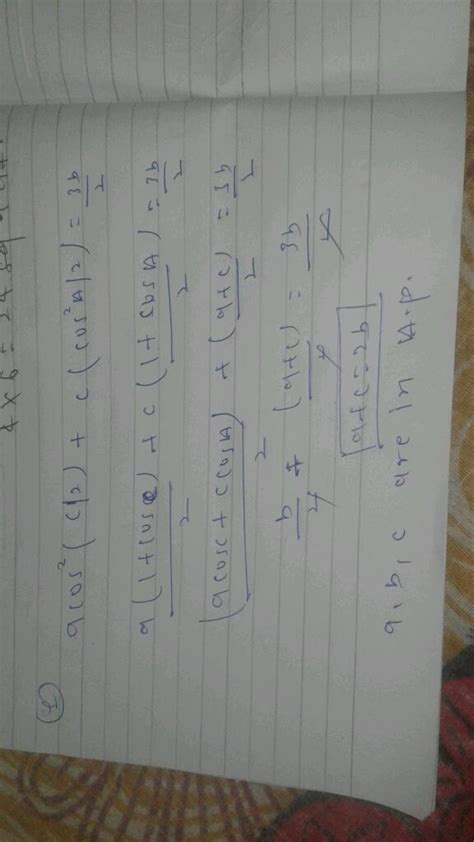 4)
a cos²(C/2) + c(cos²A/2) = 3b/2
a(1+cosC)/2 + c(1+cosA)/2 = 3b/2
(a cosC + c cosA)/2 + (a+c)/2 = 3b/2
b/2 + (a+c)/2 = 3b/2
a+c=2b
a, b, c are in A.P.